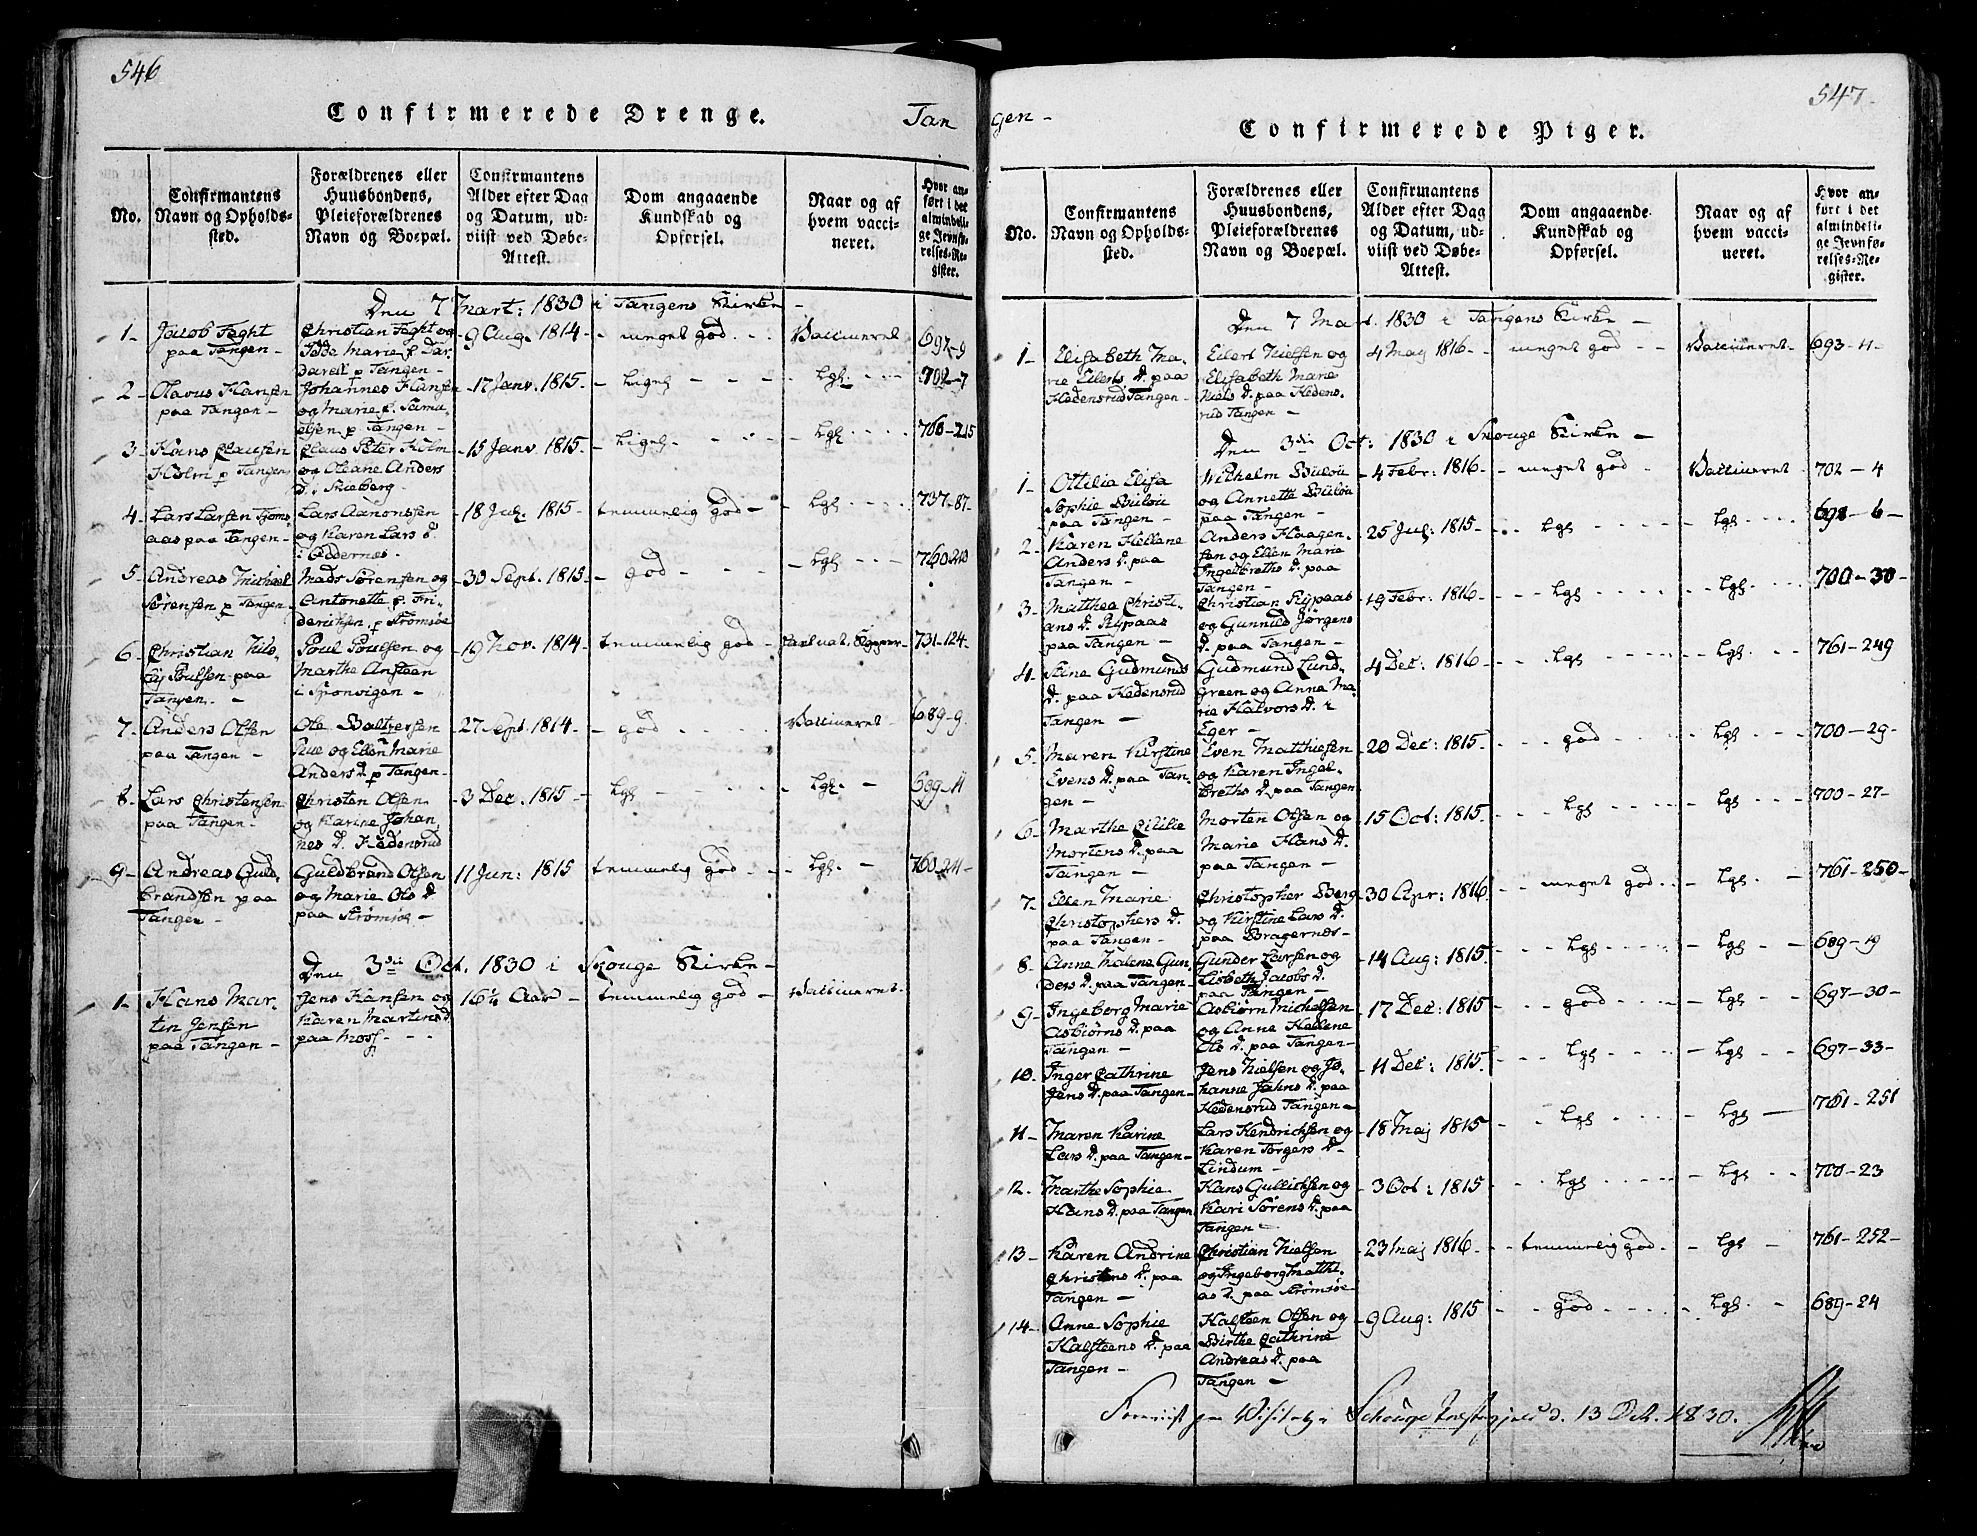 546
Confirmerede Drenge.
Tan
No.
Confirmantens
Navn og Opholds-
sted.
Forældrenes eller
Huusbondens,
Pleieforældrenes
Navn og Boepæl.
Confirmantens
Alder efter Dag
og Datum, ud-
viist ved Døbe-
Attest.
Dom angaaende
Kundskab og
Opførsel.
Naar og af
hvem vacci-
neret.
Hvor an-
ført i det
almindeli-
ge Jevnfø-
relses-Re-
gister.
Den 7 Mart: 1830 i Tangens Kirke -
1- Jacob Foght
paa Tangen-
Christian Foght og
Marie
p Tangen -
-9 Aug. 1814- - meget god - - Vaccineret 697-9
2- Olavus Hansen
paa Tangen -
Johannes Hansen
og Marie f. Samu-
elsen p Tangen -
-17 Janv. 1815- - Ligel - - - - Lgl. - - - 702-7
3- Hans Clausen
Holm p Tangen
Claus Peter Holm
og Oleane Anders
D. i Skieberg-
-15 Janv. 1815- - Ligel- - - - Lgl - - - 760-215
4- Lars Larsen Tjoms-
aas paa Tangen-
Lars Aanonsen
og Karen Lars D.
i Oddernes-
-18 Jul. 1815- temmelig god - - Lgl - - - 737-87-
5- Andreas Michael
Sørensen p Tangen
Mads Sørensen og
Antonette f. Fri-
derichsen p Strømsøe
-30 Sept. 1815- - god - - - - Lgl - - - 760-210
6- Christian Nilo-
Poulsen paa
Tangen -
Poul Poulsen og
Marthe Ansteen
i
-19 Nov. 1814 temmelig god - 731-124-
7- Anders Olsen
paa Tangen -
Ole Baltzersen
og Ellen Marie
Anders D. p Tangen-
27 Sept. 1814- - god - - - Vaccineret- 689-9-
8- Lars Christensen
paa Tangen -
Christen Olsen
og Karine Johan
nes D. Hedensrud
-3 Dec. 1815 - Lgl - - - - Lgl. - 689-11
9- Andreas Guld-
brandsen paa
Tangen -
Guldbrand Olsen
og Marie Ols D
paa Strømsøe -
11 Jun: 1815 temmelig god - - Lgl. - 760-211-
Den 3die Oct. 1830 i Skouge Kirke -
1- Hans Mar-
tin Jensen
paa Tangen -
Jens Hansen og
Karen Martins D
paa Moss - -
16¼ Aar - temmelig god - Vaccineret-
547-
gen -
Confirmerede Piger.
No.
Confirmantens
Navn og Opholds-
sted.
Forældrenes eller
Huusbondens,
Pleieforældrenes
Navn og Boepæl.
Confirmantens
Alder efter Dag
og Datum, ud-
viist ved Døbe-
Attest.
Dom angaaende
Kundskab og
Opførsel.
Naar og af
hvem vacci-
neret.
Hvor an-
ført i det
almindeli-
ge Jevnfø-
relses-Re-
gister.
Den 7 Mart. 1830 i Tangens Kirke -
1- Elisabeth Ma-
rie Eilerts D. paa
Hedensrud Tangen-
Eilert Nielsen og
Elisabeth Marie
Niels D. paa Hedens-
rud Tangen -
4 Maj 1816- - meget god - - Vaccineret- 693-11-
Den 3die Oct: 1830 i Skouge Kirke -
1- Ottilia Elisa
Sophie Bülow
paa Tangen -
Wilhelm Bülow
og Annette Bülow
paa Tangen -
-4 Febr: 1816- - meget god - Vaccineret 702-4
2- Karen Hellene
Anders D. paa
Tangen -
Anders Haagen-
sen og Ellen Marie
Ingelbreths D. paa
Tangen -
25 Jul: 1815- - Lgl - - - - - Lgl - - - 698-6-
3- Matthea Christi-
ans D. Rypaas
paa Tangen -
Christian Rypaas
og Gunnild Jørgens
D. paa Tangen -
-19 Febr: 1816- - - Lgl - - - - - Lgl - - - 700-30-
4- Stine Gudmunds
D. paa Hedensrud
Tangen -
Gudmund Lund-
green og Anna Ma-
rie Halvors D. i
Eger -
4 Dec: 1816- - - Lgl - - - - - Lgl. - - 761-249
5- Maren Kirstine
Evens D. paa Tan-
gen -
Even Matthiesen
og Karen Ingel-
breths D. paa Tangen
-20 Dec: 1815- - - god - - - - - Lgl - - - 700-29-
6- Marthe Cicilie
Mortens D. paa
Tangen -
Morten Olsen og
Marie Hans D.
paa Tangen -
-15 Oct: 1815- - - Lgl - - - - - Lgl - - - 700-27-
7- Ellen Marie
Christophers D.
paa Tangen -
Christopher Berg
og Kirstine Lars D.
paa Bragernes-
-30 Apr: 1816 - - meget god - - - Lgl. - - 761-250-
8- Anne Malene Gun-
ders D. paa Tangen-
Gunder Larsen og
Lisbeth Jacobs D.
paa Tangen -
-14 Aug: 1815- - - Lgl - - - - - Lgl - - 689-19
9- Ingeborg Marie
Asbiørns D. paa
Tangen -
Asbiørn Michelsen
og Anne Hellene
Ols D. paa Tangen-
-17 Dec: 1815 - - god - - - - - Lgl - - 697-30-
10- Inger Cathrine
Jens D. paa Tangen-
Jens Nielsen og Jo-
hanne Jahns D. paa
Hedensrud Tangen-
-11 Dec: 1815- - - Lgl - - - - - Lgl - - 697-33-
11- Maren Karine
Lars D. paa Tangen-
Lars Hendrichsen og
Karen Torgers D.
Lindum -
-18 Maj 1815- - - Lgl - - - - Lgl - 761-251
12- Marthe Sophie
Hans D. paa Tangen
Hans Gullichsen og
Kari Sørens D. paa
Tangen -
-3 Oct: 1815 - - - Lgl - - - - - Lgl - - 700-23
13- Karen Andrine
Christens D. paa
Tangen -
Christian Nielsen
og Ingeborg Matthi-
as D. paa Strømsøe-
23 Maj 1816- - - temmelig god- - - Lgl - 761-252-
14- Anne Sophie
Halsteens D. paa
Tangen -
Halsteen Olsen og
Birthe Cathrine
Andreas D. paa
Tangen -
-9 Aug: 1815 - - god - - - - - Lgl - - 689-24
Foreviist paa Visitatz i Schouge Præstegjeld d. 13 Oct. 1830.